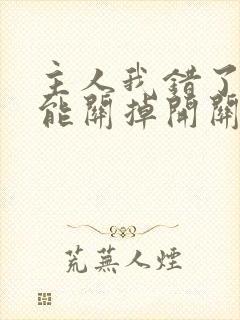 主人我錯了
能關掉開關
荒蕪人煙